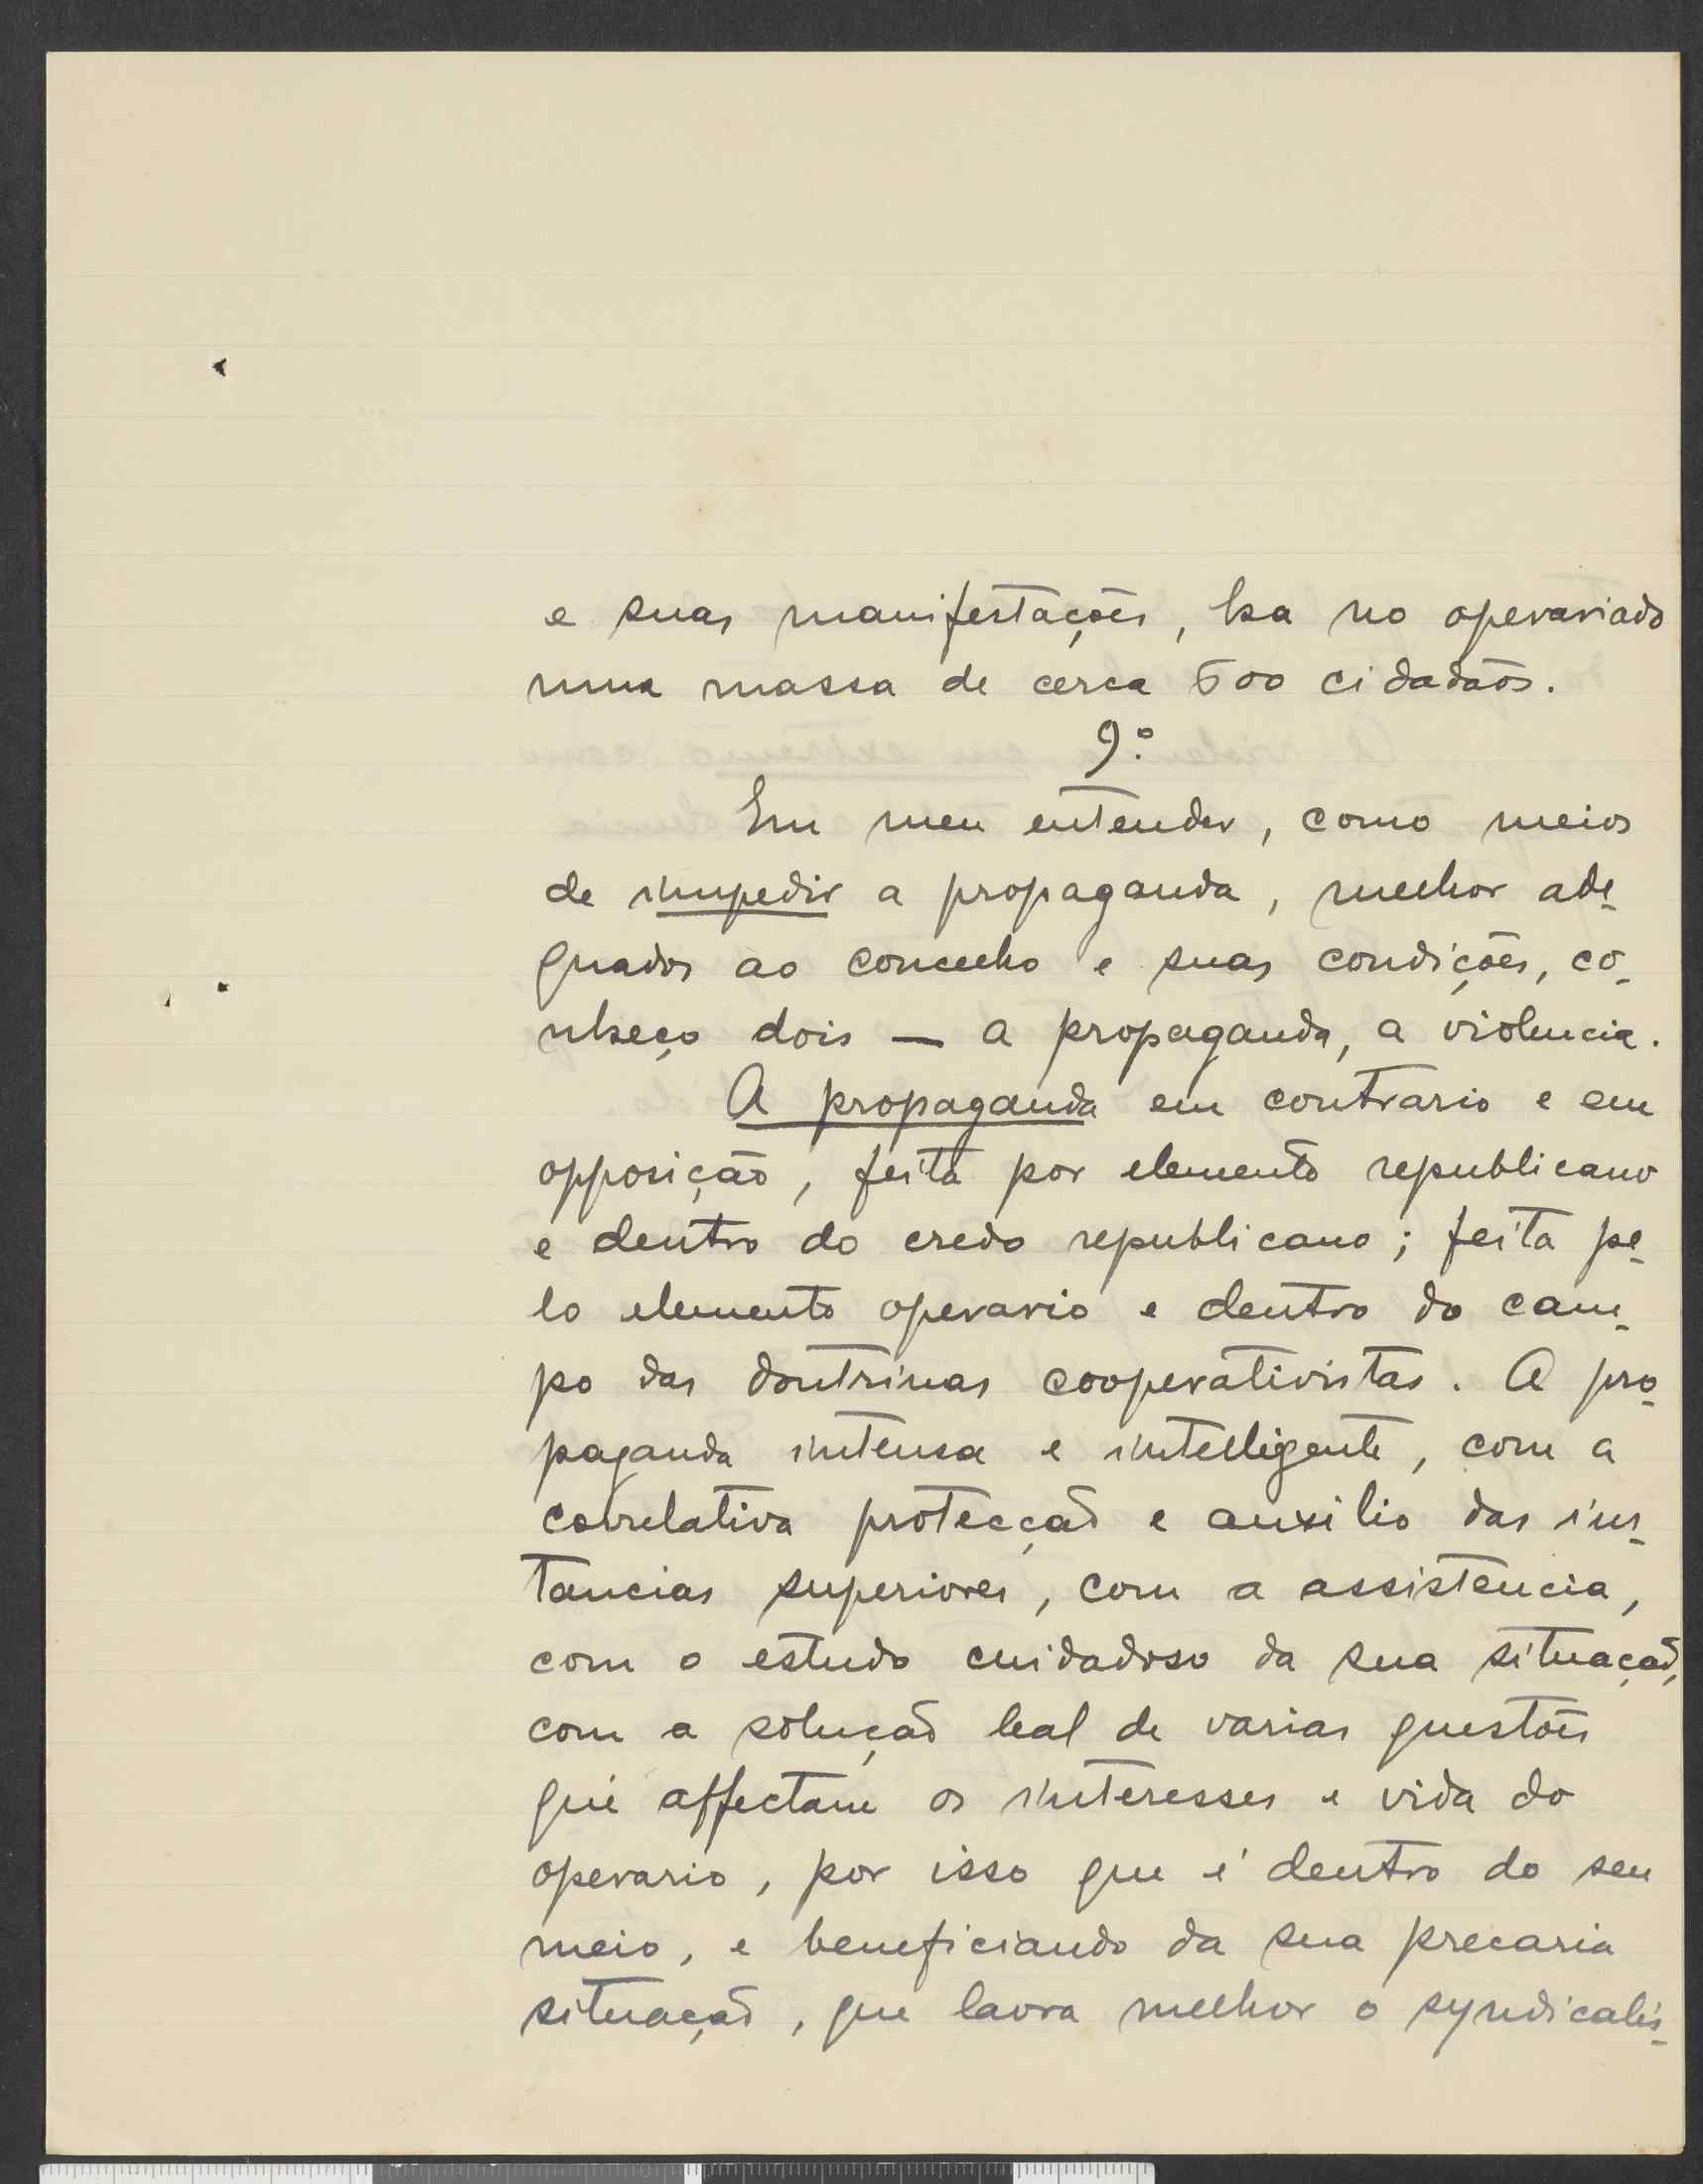 e suas manifestações, ha no operariado
uma massa de cerca 500 cidadãos.
9.º
Em meu entender, como meios
de impedir a propaganda, melhor ade-
quados ao concelho e suas condições, co-
nheço dois — a propaganda, a violencia.
A propaganda em contrario e em
opposição, feita por elemento republicano
e dentro do credo republicano; feita pe-
lo elemento operario e dentro do cam-
po das doutrinas cooperativistas. A pro-
paganda intensa e intelligente, com a
correlativa protecção e auxilio das ins-
tancias superiores, com a assistencia,
com o estudo cuidadoso da sua situação,
com a solução leal de varias questões
que affectam os interesses e vida do
operario, por isso que é dentro do seu
meio, e beneficiando da sua precaria
situação, que lavra melhor o syndicalis-